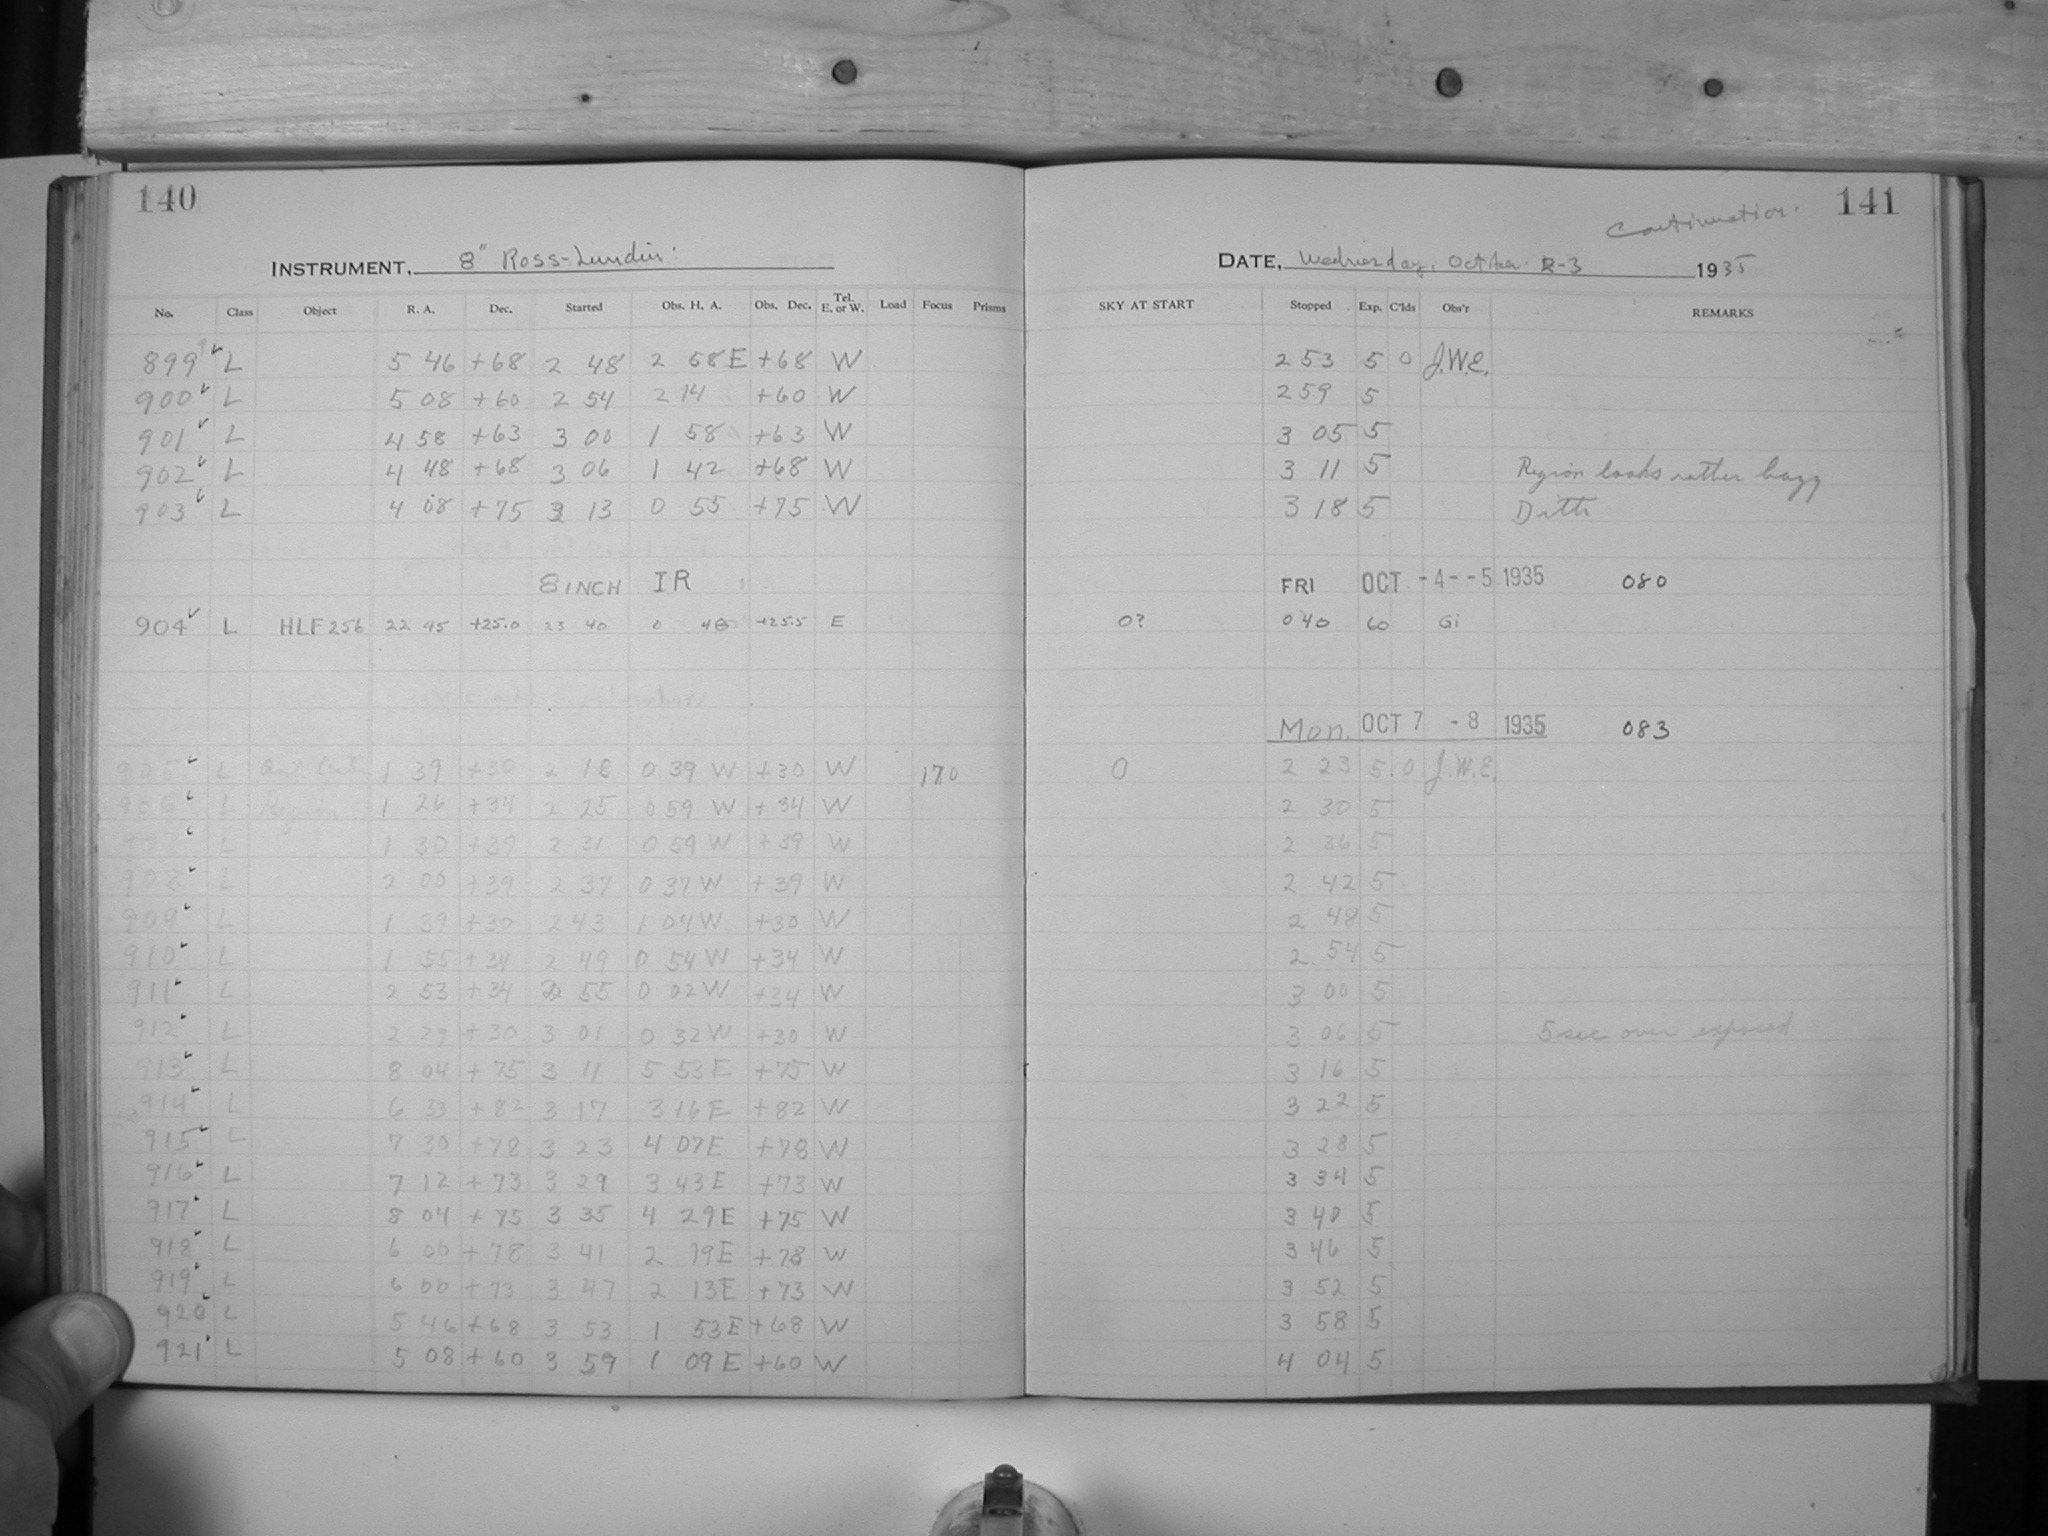 140
INSTRUMENT, 8" Ross-Lundin
No. Class Object R. A. Dec. Started Obs. H. A. Obs. Dec. Tel. E. or W. Load Focus Prisms
899 L 5 46 +68 2 48 2 58 E +68 W
900 L 5 08 +60 2 54 2 14 +60 W
901 L 4 58 +63 3 00 1 58 +63 W
902 L 4 48 +68 3 06 1 42 +68 W
903 L 4 08 +75 3 13 0 55 +75 W
8 INCH IR
904 L HLF 256 22 45 +25.0 23 40 0 +25.5 E
905 L 1 39 +30 2 18 0 39 W +30 W 17.0
906 L Region 1 26 +34 2 25 0 59 W +34 W
L 1 30 +39 2 31 0 59 W +39 W
908 L 2 00 +39 2 37 0 37 W +39 W
909 L 1 39 +30 2 43 1 04 W +30 W
910 L 1 55 +34 2 49 0 54 W +34 W
911 L 2 53 +34 2 55 0 02 W +34 W
912 L 2 29 +30 3 01 0 32 W +30 W
913 L 8 04 +75 3 11 5 53 E +75 W
914 L 6 33 +82 3 17 3 16 E +82 W
915 L 7 30 +78 3 23 4 07 E +78 W
916 L 7 12 +73 3 29 3 43 E +73 W
917 L 8 04 +75 3 35 4 29 E +75 W
918 L 6 00 +78 3 41 2 19 E +78 W
919 L 6 00 +73 3 47 2 13 E +73 W
920 L 5 46 +68 3 53 1 53 E +68 W
921 L 5 08 +60 3 59 1 09 E +60 W
Continuation. 141
DATE, Wednesday, October 2-3 1935
SKY AT START Stopped Exp. C'lds Obs'r REMARKS
2 53 5 0 J.W.E.
2 59 5
3 05 5
3 11 5 Region looks rather hazy
3 18 5 Ditto
FRI OCT -4--5 1935 080
0? 0 40 60 Gi
Mon. OCT 7 - 8 1935 083
0 2 23 5 0 J.W.E.
2 30 5
2 36 5
2 42 5
2 48 5
2 54 5
3 00 5
3 06 5 5 sec over exposed
3 16 5
3 22 5
3 28 5
3 34 5
3 40 5
3 46 5
3 52 5
3 58 5
4 04 5